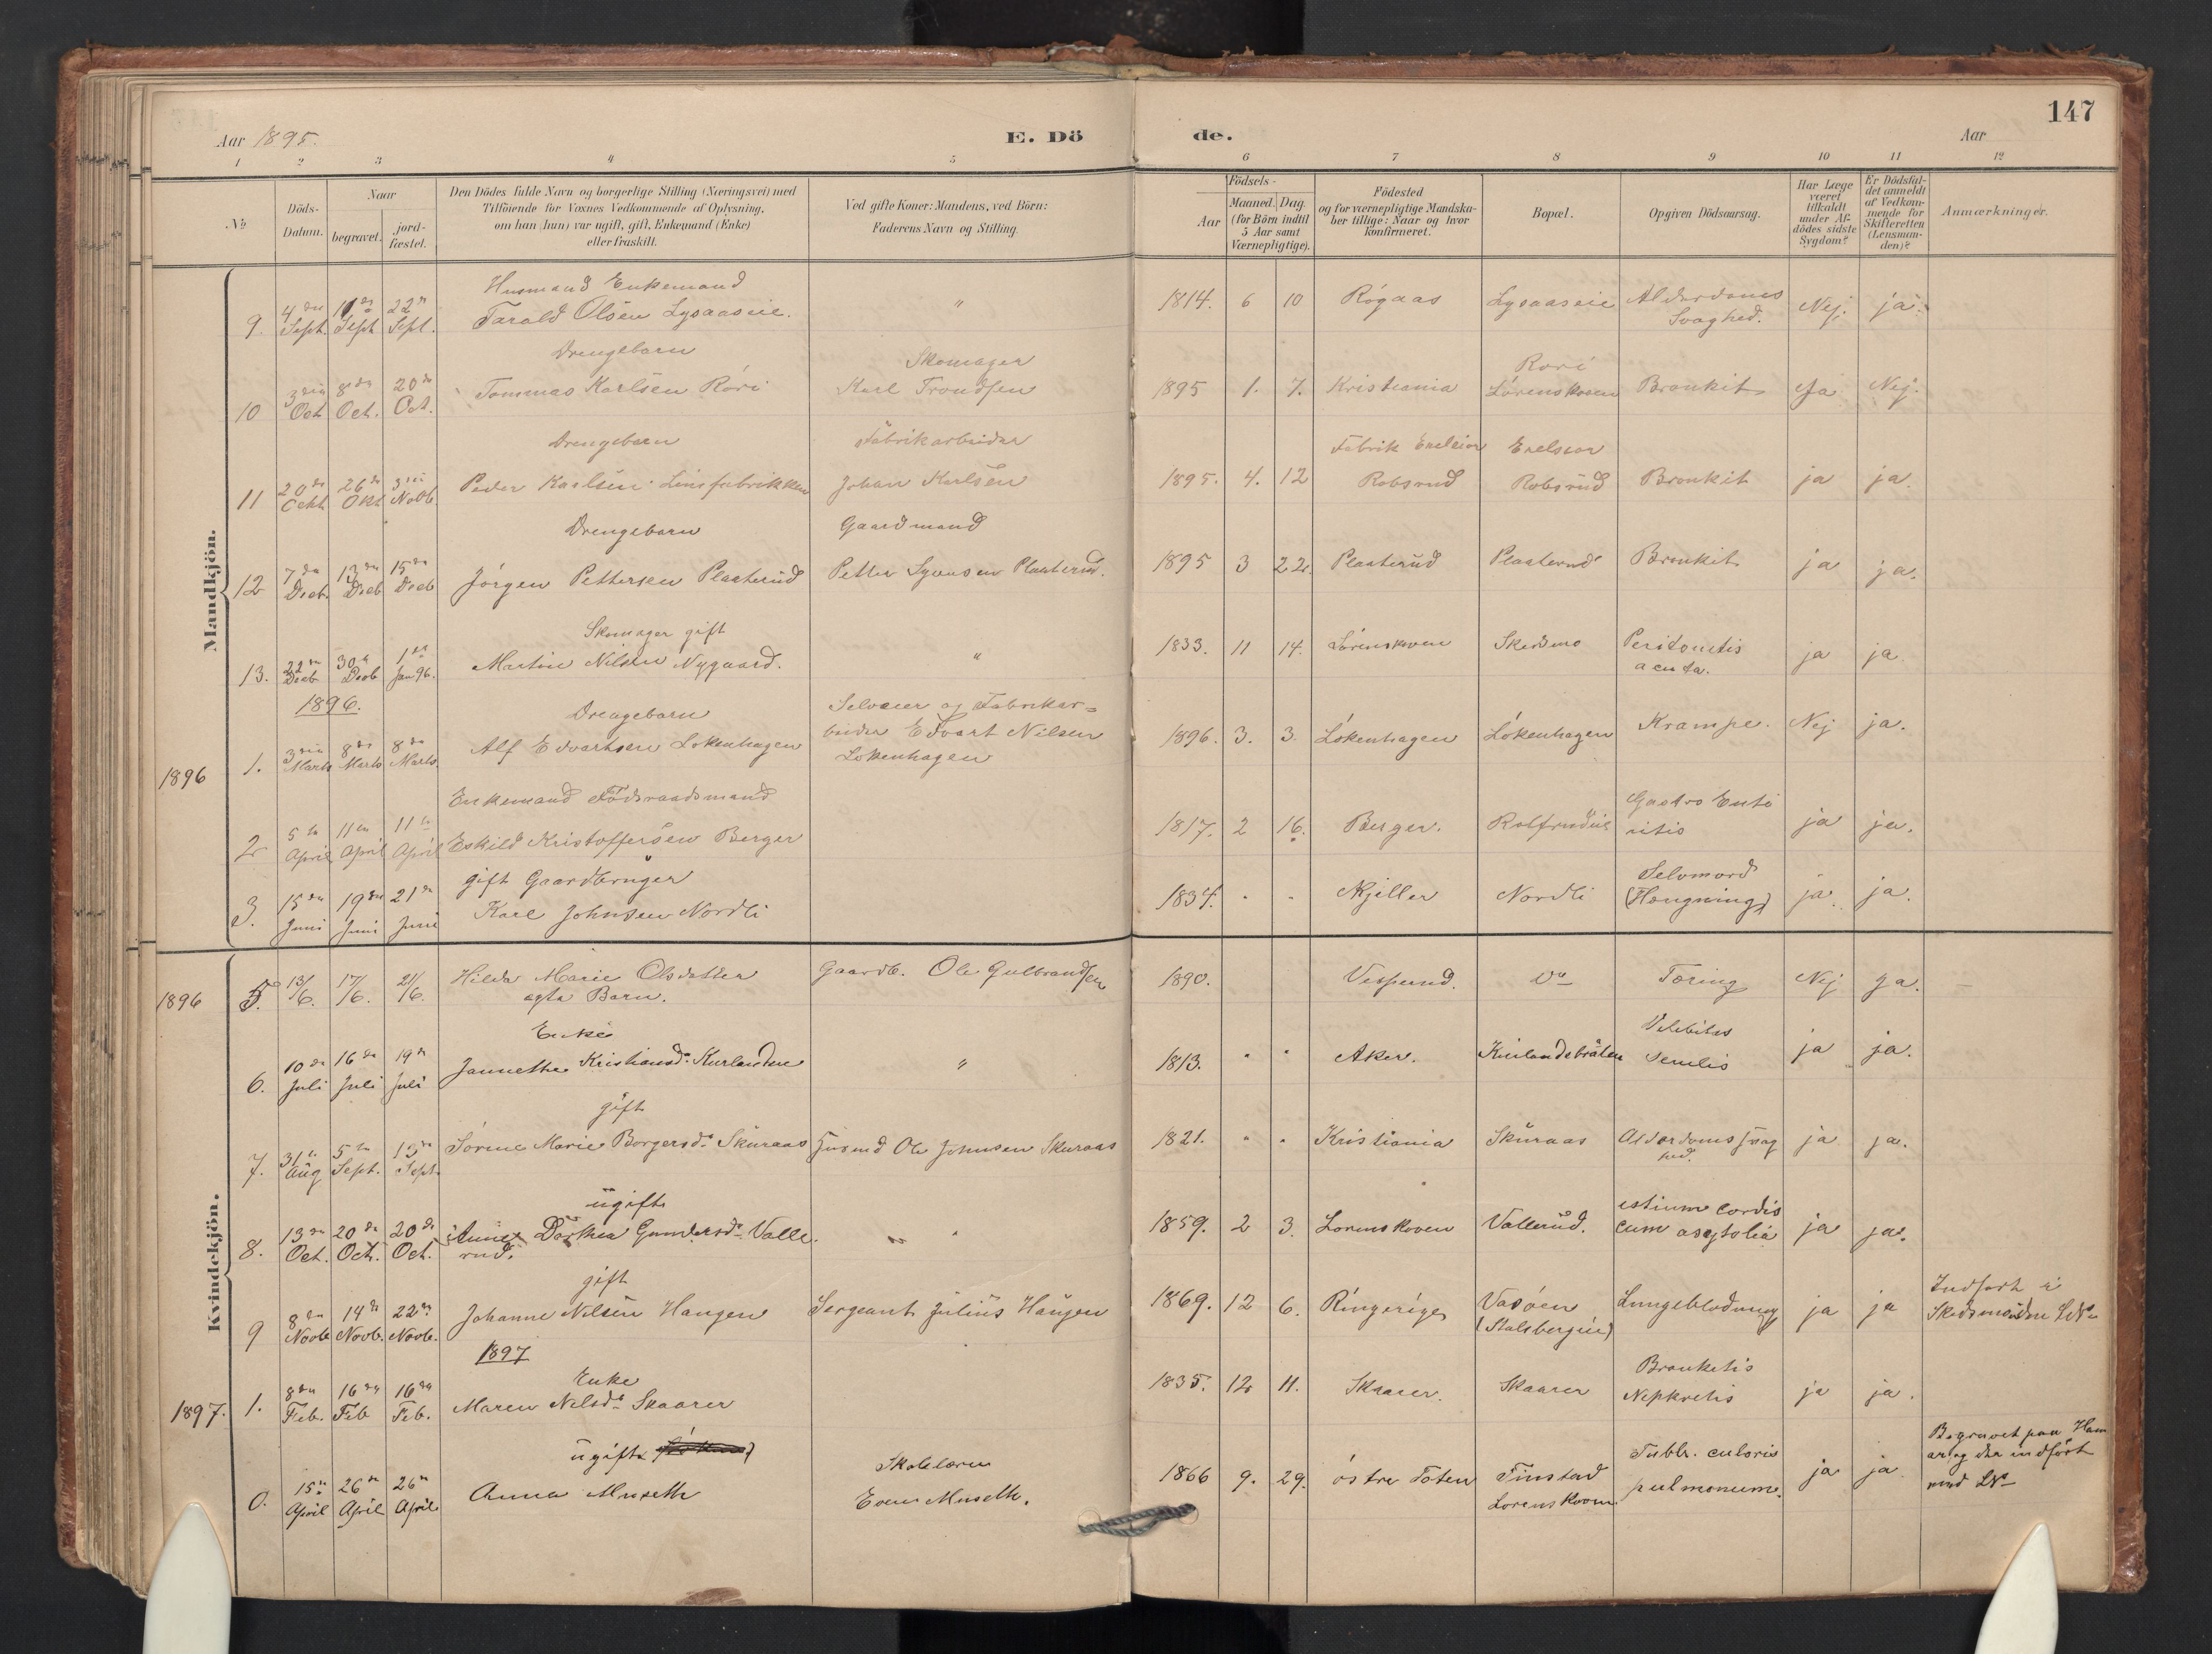 147
Aar 1895.
E. Dö
de.
Aar
1 2 3 4 5 6 7 8 9 10 11 12
No
Döds-
Datum.
Naar
begravet.
jord-
fæstet.
Den Dödes fulde Navn og borgerlige Stilling (Næringsvei) med
Tilföiende for Voxnes Vedkommende af Oplysning,
om han (hun) var ugift, gift, Enkemand (Enke)
eller fraskilt.
Ved gifte Koner: Mandens, ved Börn:
Faderens Navn og Stilling.
Födsels-
Aar
Maaned. Dag.
(for Börn indtil
5 Aar samt
Værnepligtige).
Födested
og for værnepligtige Mandska-
ber tillige: Naar og hvor
konfirmeret.
Bopæl.
Opgiven Dödsaarsag.
Har Læge
været
tilkaldt
under Af-
dödes sidste
Sygdom?
Er Dödsfal-
det anmeldt
af Vedkom-
mende for
Skifteretten
(Lensman-
den)?
Anmærkninger.
Mandkjön.
Husmand Enkemand
9. 4de Sept. Sept 22de Sept. Tarald Olsen Lysaaseie. " 1814. 6 10 Rógaas Lysaaseie Alderdoms Svaghed. Nej. ja.
Drengebarn Skomager Rori
10 3die Oct 8de Oct. 20de Oct. Tommas Karlsen Róri Karl Trondsen 1895 1. 7. Kristiania Lórenskoven Bronkit Ja Nej.
Drengebarn Fabrikarbeider Fabrik Exelsior
11 20de Octt 26de Okt 3die Novb. Peder Karlsen Linsfabrikken Johan Karlsen 1895. 4. 12 Robsrud Robsrud Bronkit ja ja.
Drengebarn Gaardmand
12 7de Decb. 13de Decb 15de Decb Jórgen Pettersen Plaaterud Petter Syversen Plaaterud. 1895 3 22. Plaaterud Plaaterud Bronkit ja ja.
Skomager gift
13. 22de Decb 30te Decb 1ste Jan 96. Martin Nilsen Nygaard. " 1833. 11 14. Lórenskoven Skedsmo Peritonitis acuta. ja ja
1896.
Drengebarn Selveier og Fabrikar=
1896 1. 3die Marts 8de Marts 8de Marts. Alf Edvartsen Lokenhagen beider Edvart Nilsen Lokenhagen 1896. 3. 3. Lókenhagen Lókenhagen Krampe. Nej ja.
Enkemand Födsraadsmand
2 5te April 11te April 11te April Eskild Kristoffersen Berger 1817. 2 16. Berger. Gastro Enteritis ja ja.
gift Gaardbruger
3. 15de Juni 19de Juni 21de Juni Karl Johnsen Nordli 1834. - - Kjeller Nordli Selvmord (Hængning) ja. ja.
Kvindekjön.
1896 5. 13/6. 17/6. 21/6. Hilda Marie Olsdatter ægte Barn. Gaardb. Ole Gulbrandsen 1890. do Tæring Nej ja.
Enke
6. 10de Juli 16de Juli 19de Juli Jannethe Kristiansd. Kurlanden " 1813. " " Aker. Kurlandsbråten Senilis ja ja.
gift
7. 31te Aug 5te Sept. 13de Sept. Sórine Marie Borgersd. Skuraas Husmd Ole Johnsen Skuraas 1821. " " Kristiania Skuraas Alderdomssvaghed. ja ja.
ugift
8. 13de Oct. 20de Oct. 20de Oct. Anne Dorthea Gundersd. Vallerud. " 1859. 2 3. Lorenskoven Vallerud. ostium cordis cum asystolia ja ja.
gift
9 8de Novb. 14de Novb. 22de Novb. Johanne Nilsen Haugen Sergeant Julius Haugen 1869. 12 6. Ringerige Vasóen (Stalsbergeie) Lungeblødning ja ja Indført i Skedsmo
1897
Enke
1897. 1. 8de Feb. 16de Feb 16de Feb. Maren Nilsd. Skaarer 1835. 12 11. Skaarer. Skaarer Bronketis Nephretis ja ja.
ugift
0. 15de April 26de April 26de April Anna Museth Skolelærer Even Museth. 1866 9. 29. óstre Toten Finstad Lorenskoven. Tubb. culosis pulmonum. ja ja Begravet paa Hamar og der indfört med No